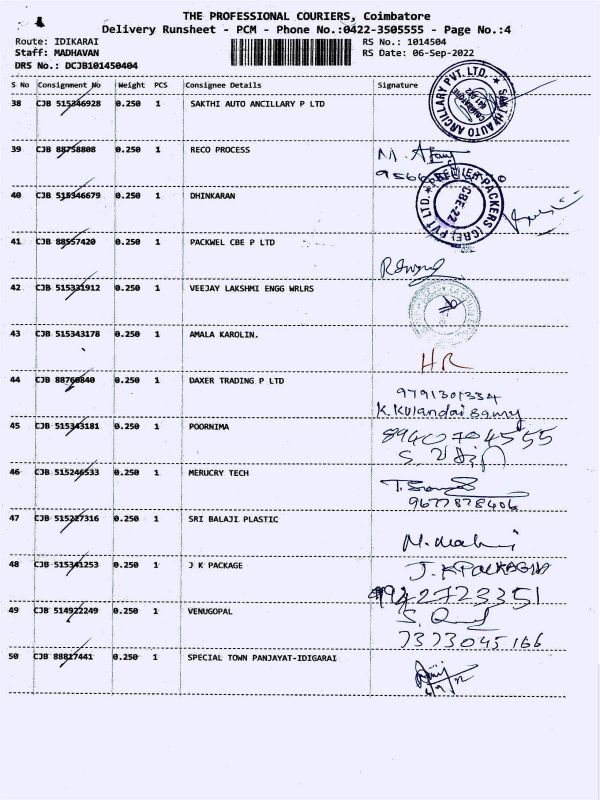 THE PROFESSIONAL COURIERS, Coimbatore
Delivery Runsheet - PCM - Phone No.:0422-3505555 - Page No.:4
Route: IDIKARAI RS No.: 1014504
Staff: MADHAVAN RS Date: 06-Sep-2022
DRS No.: DCJB101450404
S No Consignment No Weight PCS Consignee Details Signature
38 CJB 515346928 0.250 1 SAKTHI AUTO ANCILLARY P LTD
SAKTHI AUTO ANCILLARY PVT. LTD. ★
39 CJB 88758808 0.250 1 RECO PROCESS
40 CJB 515346679 0.250 1 DHINKARAN
PREMIER PACKERS (CBE) PVT LTD. ★
CBE-22
41 CJB 88557420 0.250 1 PACKWEL CBE P LTD
42 CJB 515331912 0.250 1 VEEJAY LAKSHMI ENGG WRLRS
43 CJB 515343178 0.250 1 AMALA KAROLIN.
HR
44 CJB 88760840 0.250 1 DAXER TRADING P LTD
9791301334
K. Kulandai Samy
45 CJB 515343181 0.250 1 POORNIMA
8940704555
46 CJB 515246533 0.250 1 MERUCRY TECH
9677878406
47 CJB 515227316 0.250 1 SRI BALAJI PLASTIC
48 CJB 515341253 0.250 1 J K PACKAGE
J. K PACKAGING
9942723351
49 CJB 514922249 0.250 1 VENUGOPAL
7373045166
50 CJB 88817441 0.250 1 SPECIAL TOWN PANJAYAT-IDIGARAI